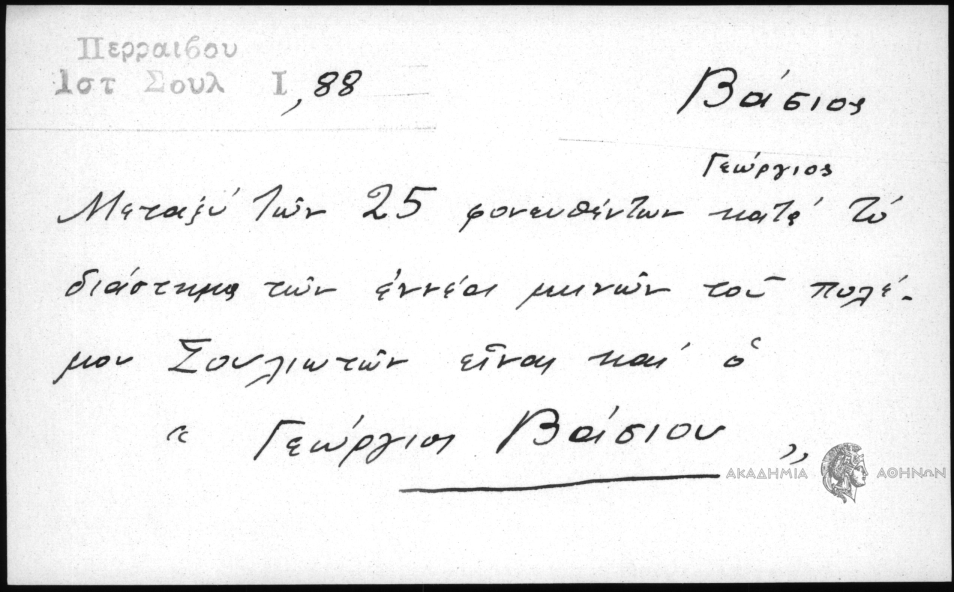 Περραιβου
Ιστ Σουλ Ι, 88
Βάσιος
Γεώργιος
Μεταξύ τῶν 25 φονευθέντων κατά τό
διάστημα τῶν ἐννέα μηνῶν τοῦ πολέ-
μου Σουλιωτῶν εἶναι καί ὁ
“ Γεώργιος Βάσιου „
ΑΚΑΔΗΜΙΑ ΑΘΗΝΩΝ